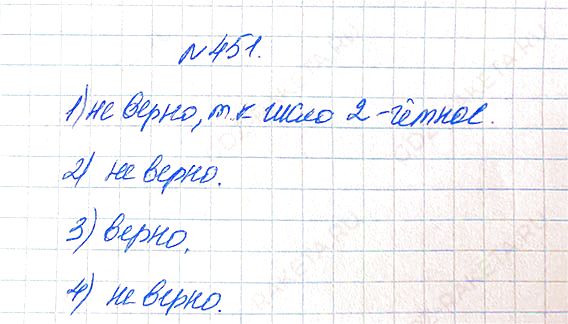 N 451.
1) не верно, т к число 2 - чётное.
2) не верно.
3) верно.
4) не верно.